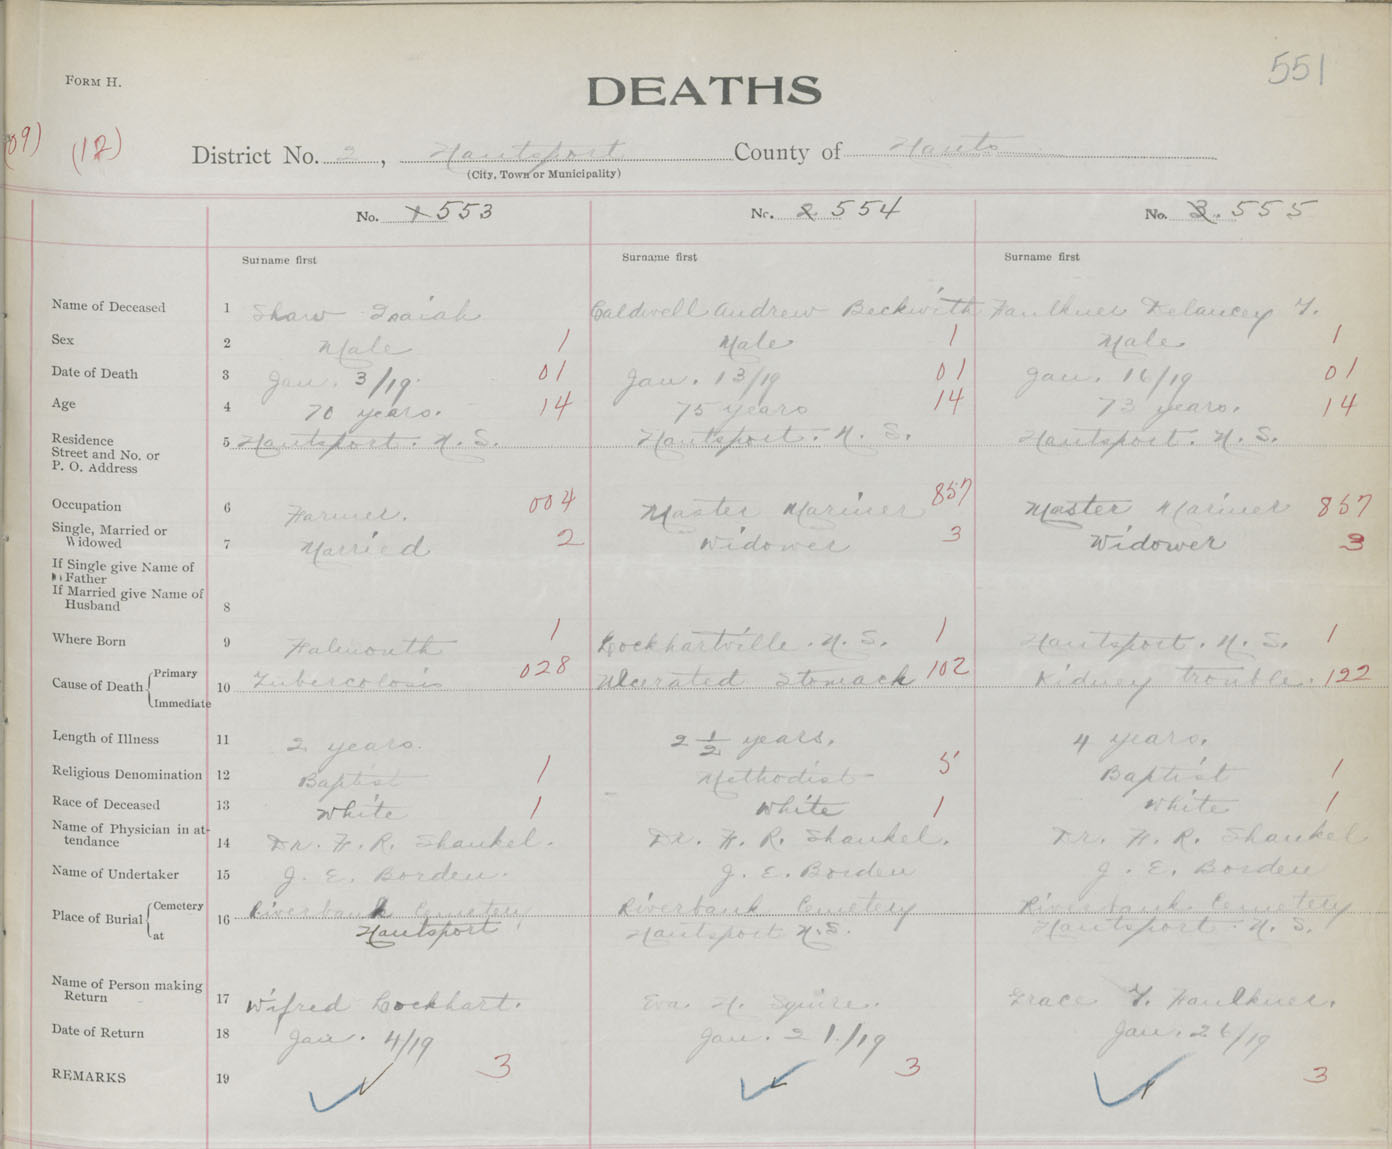 551
FORM H.
DEATHS
09) (12)
District No. 2, Hantsport County of Hants
(City, Town or Municipality)
No. 1 553 No. 2. 554 No. 3. 555
Surname first Surname first Surname first
Name of Deceased 1 Shaw Isaiah Caldwell Andrew Beckwith Faulkner Delancey Y.
Sex 2 Male 1 Male 1 Male 1
Date of Death 3 Jan. 3/19. 01 Jan. 13/19 01 Jan. 16/19 01
Age 4 70 years. 14 75 years 14 73 years. 14
Residence
Street and No. or
P. O. Address
5 Hantsport. N. S. Hantsport. N. S. Hantsport. N. S.
Occupation 6 Farmer. 004 Master Mariner 857 Master Mariner 857
Single, Married or
Widowed 7 Married 2 Widower 3 Widower 3
If Single give Name of
Father
If Married give Name of
Husband 8
Where Born 9 Falmouth 1 Lockhartville. N. S. 1 Hantsport. N. S. 1
Cause of Death Primary
Immediate
10 Tubercolosis 028 Ulcerated Stomach 102 Kidney trouble. 122
Length of Illness 11 2 years. 2 1/2 years. 4 years.
Religious Denomination 12 Baptist 1 Methodist 5 Baptist 1
Race of Deceased 13 White 1 White 1 White 1
Name of Physician in at-
tendance 14 Dr. F. R. Shankel. Dr. F. R. Shankel. Dr. F. R. Shankel
Name of Undertaker 15 J. E. Borden. J. E. Borden J. E. Borden
Place of Burial Cemetery
at
16 Riverbank Cemetery Riverbank Cemetery Riverbank Cemetery
Hantsport Hantsport N.S. Hantsport. N. S.
Name of Person making
Return 17 Wifred Lockhart. Eva H. Squire. Grace Y. Faulkner.
Date of Return 18 Jan. 4/19 Jan. 21./19 Jan. 26/19
REMARKS 19 3 3 3